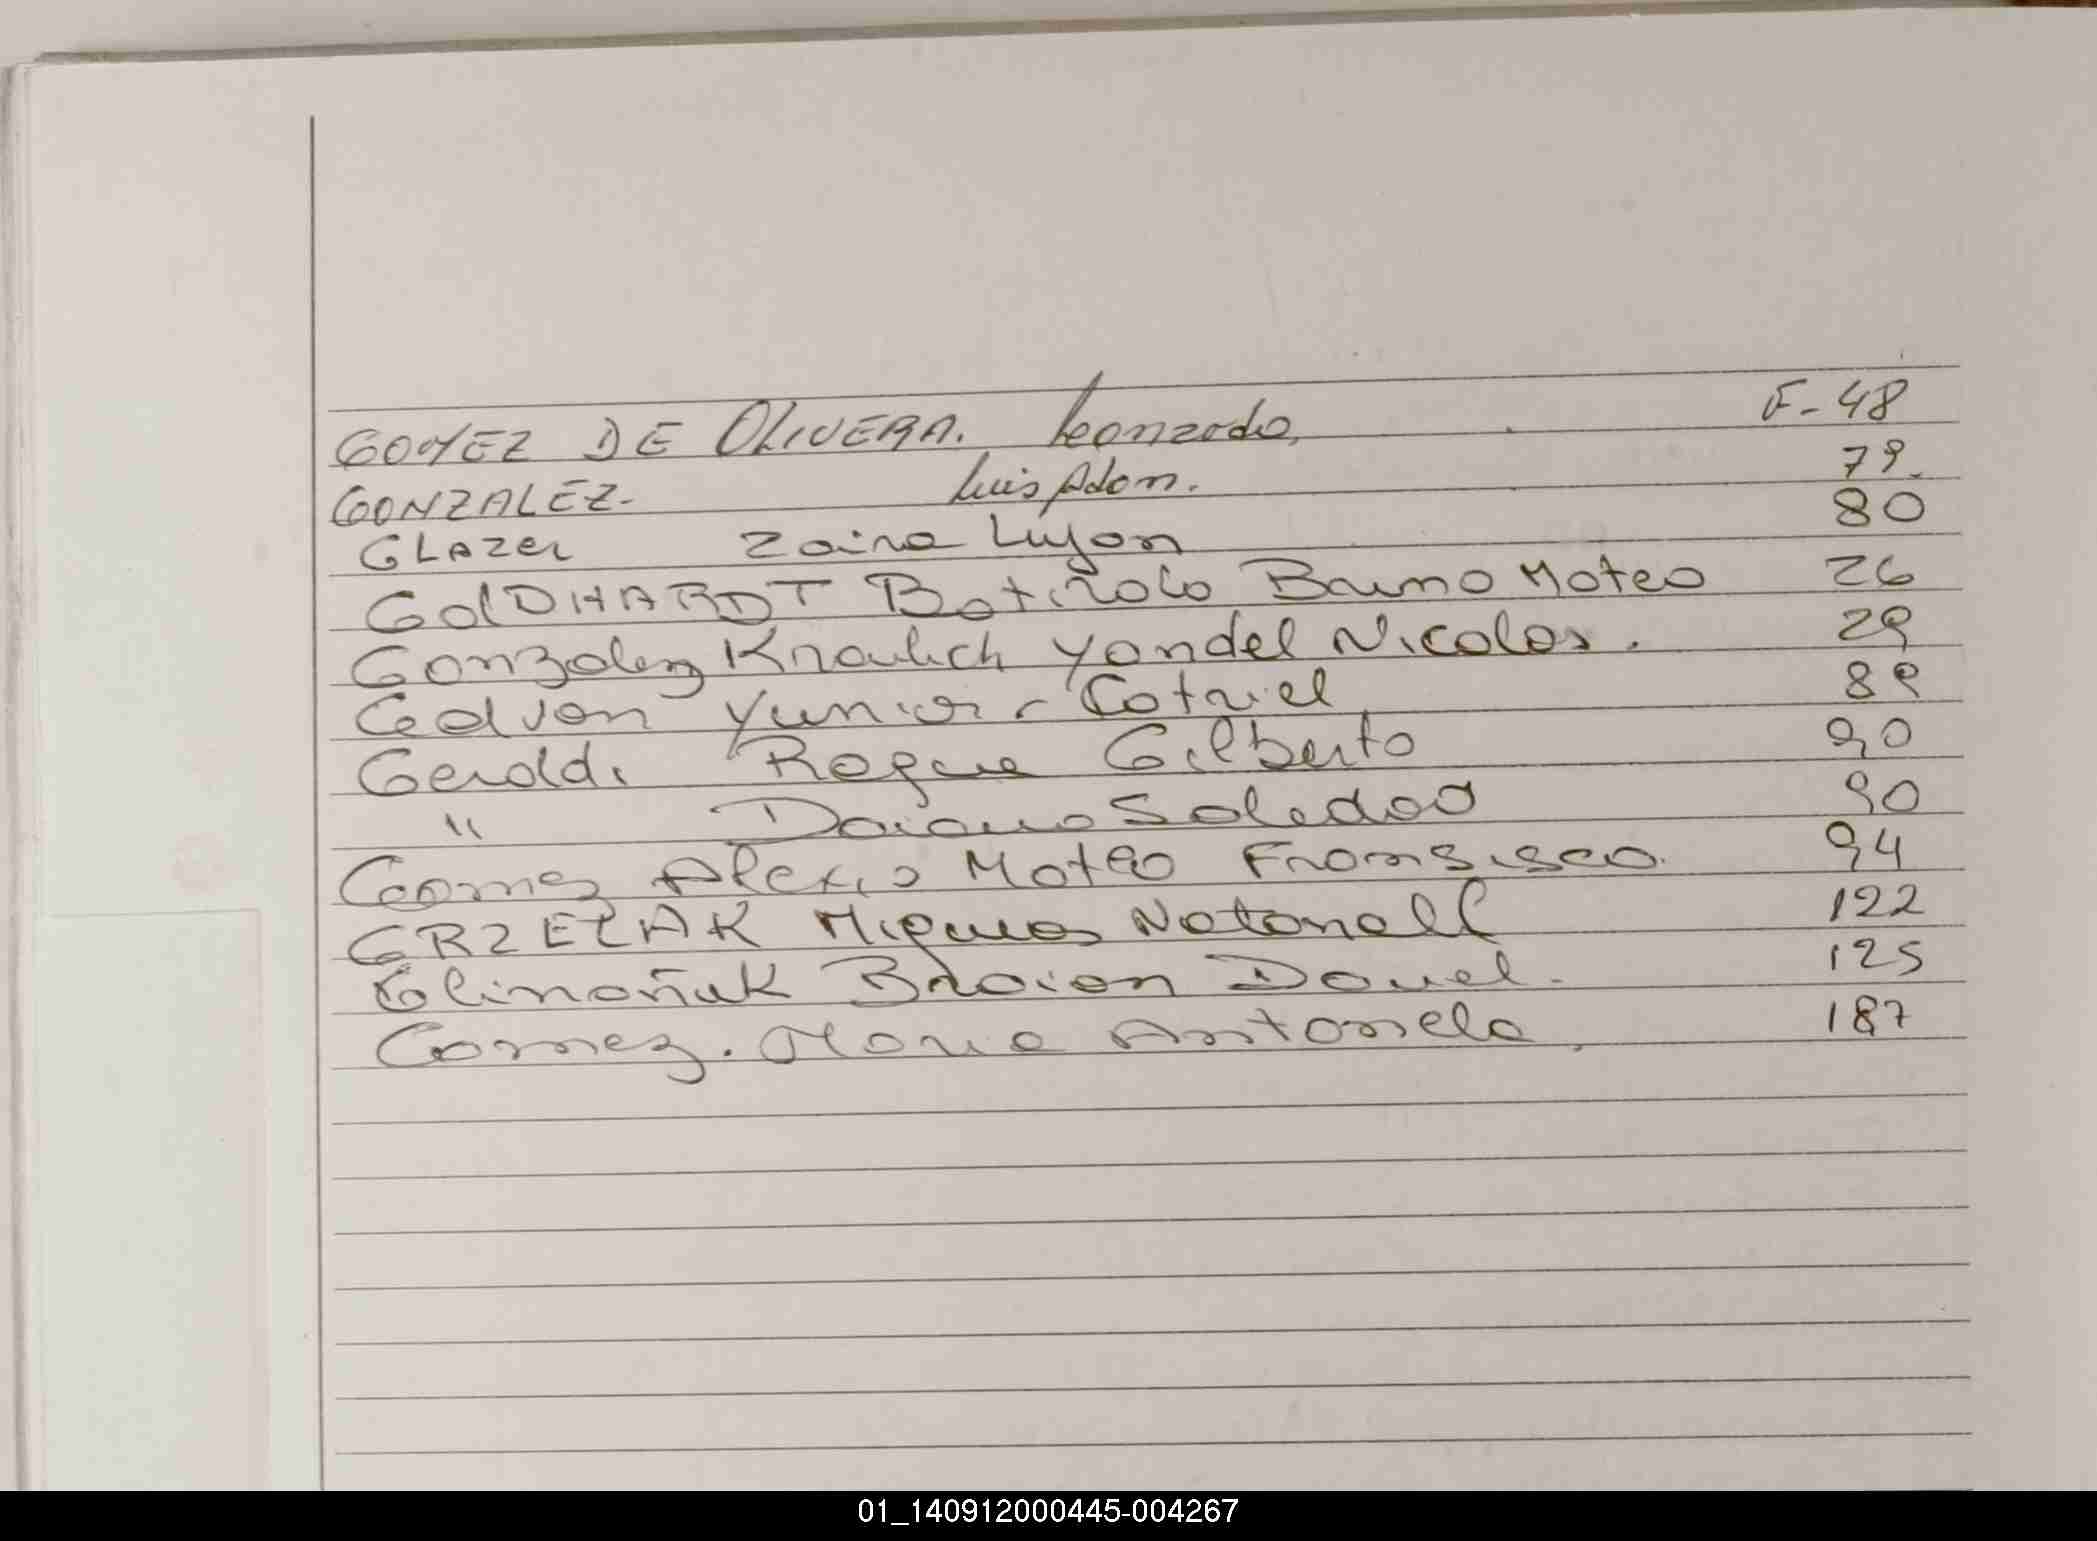 GOMEZ DE OLIVERA. Leonardo, F-48
GONZALEZ. Luis Adan. 79.
GLAZER Zaira Lujan 80
GolDHARDT Batirolo Bruno Mateo 26
Gonzalez Knaulich Yandel Nicolas. 29
Galvan Yunior Gatriel 89
Geraldi Roque Gilberto 90
" Daiana Soledad 90
Gomez Alexis Mateo Fransisco. 94
GRZELAK Miqueas Natanaell 122
Glimañuk Braian Daniel. 125
Gomez. Maria Antonela, 187
01_140912000445-004267